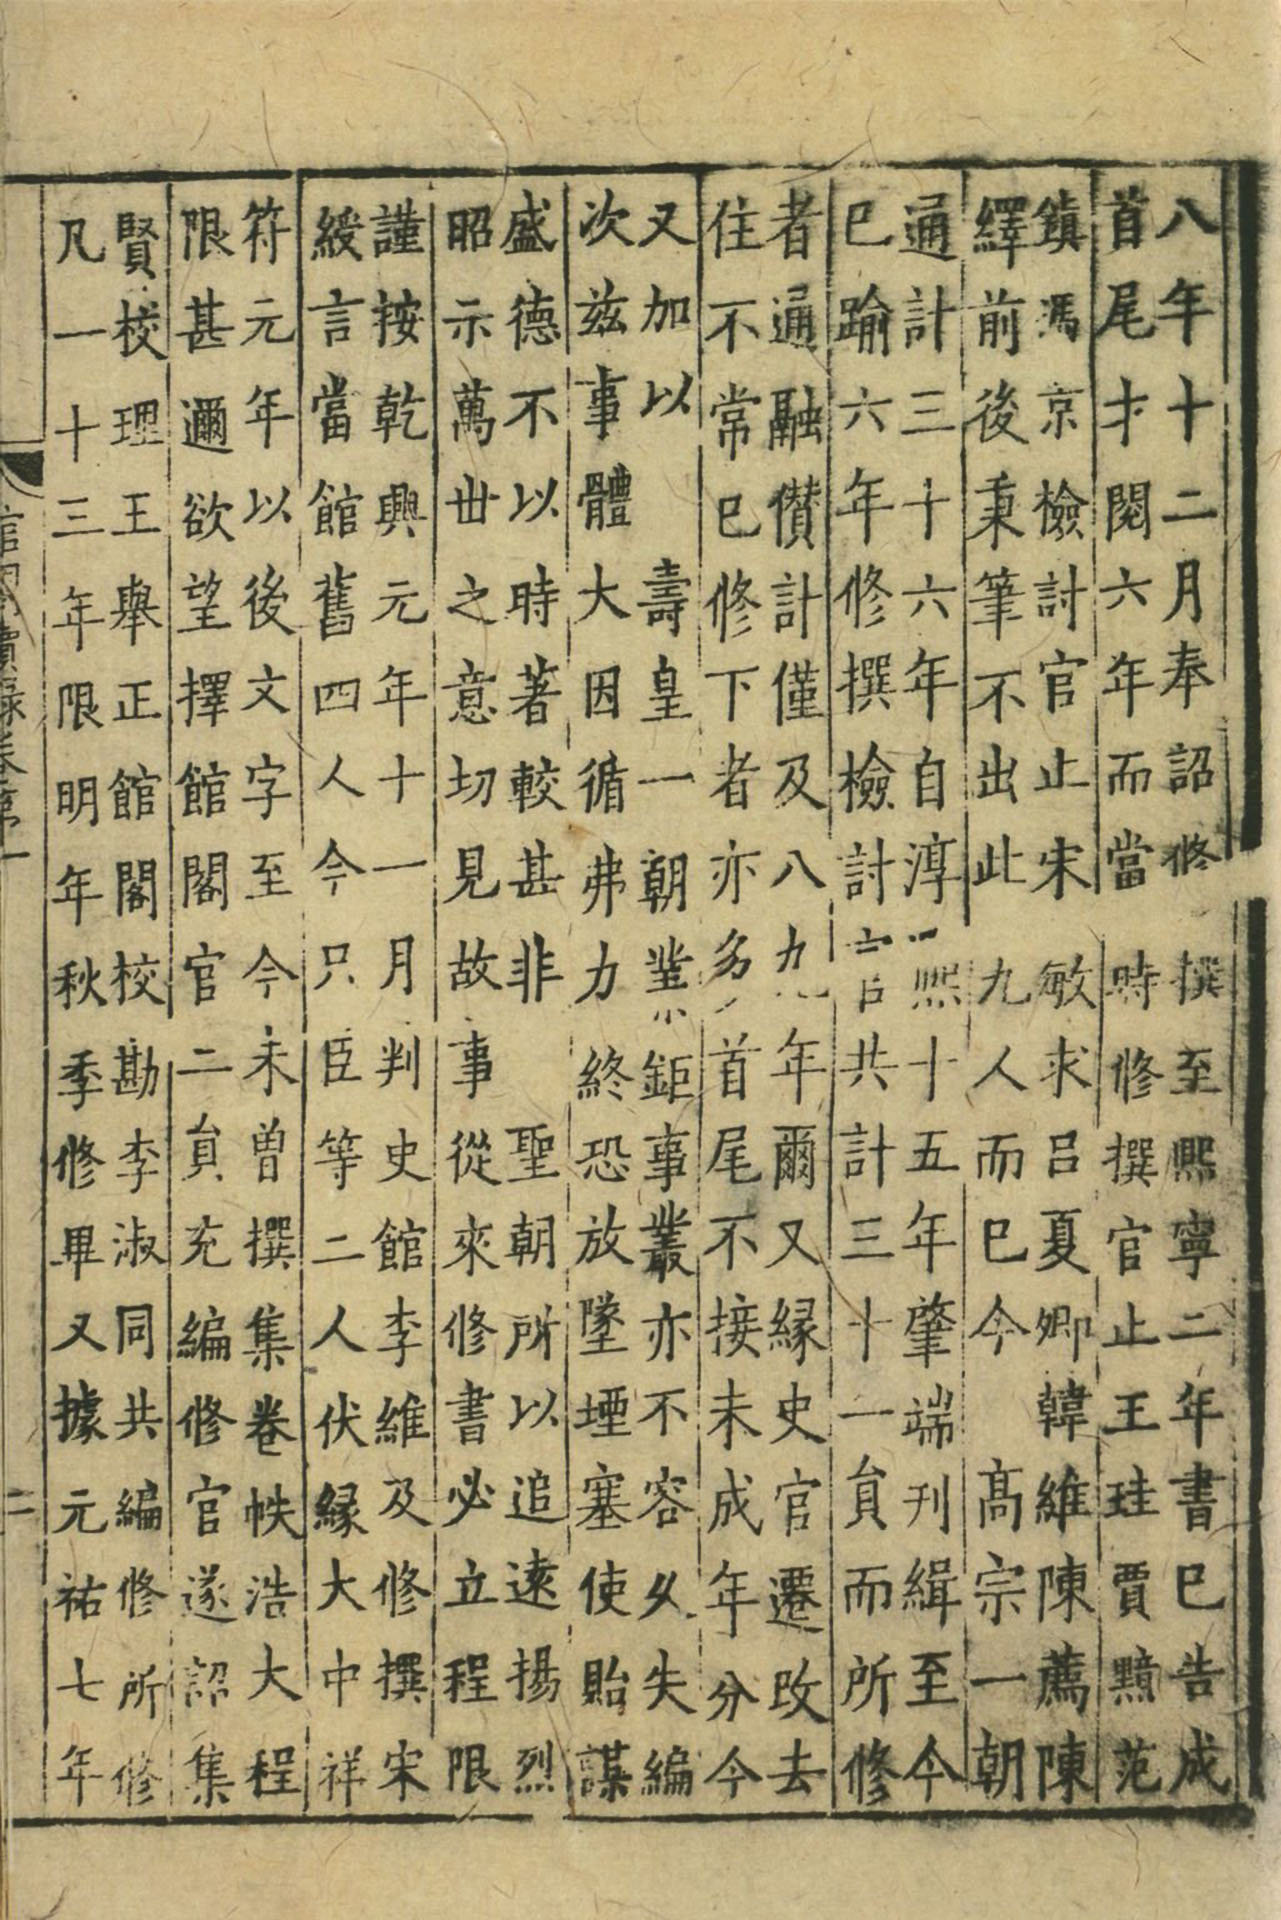 八年十二月奉詔修撰至熙寧二年書巳告成
首尾才閱六年而當時修撰官止王珪賈黯范
鎮馮京檢討官止宋敏求吕夏卿韓維陳薦陳
繹前後秉筆不出此九人而巳今高宗一朝
通計三十六年自淳熙十五年肇端刋緝至今
巳踰六年修撰檢討官共計三十一貟而所修
者通融儧計僅及八九年爾又縁史官遷改去
住不常巳修下者亦多首尾不接未成年分今
又加以壽皇一朝業鉅事叢亦不容乆失編
次兹事體大因循弗力終恐放墜堙塞使貽謀
盛德不以時著較甚非聖朝所以追逺揚烈
昭示萬丗之意切見故事從來修書必立程限
謹按乾興元年十一月判史館李維及修撰宋
綬言當館舊四人今只臣等二人伏縁大中祥
符元年以後文字至今未曽撰集卷帙浩大程
限甚邇欲望擇館閣官二貟充編修官遂詔集
賢校理王舉正館閣校勘李淑同共編修所修
凡一十三年限明年秋季修畢又據元祐七年
館閣續録卷第一
二